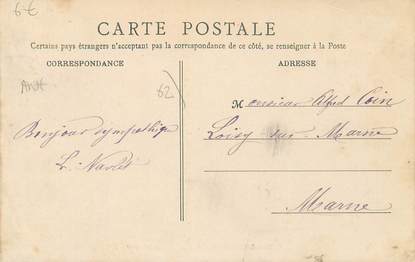 6-€
CARTE POSTALE
Certains pays étrangers n'acceptant pas la correspondance de ce côté, se renseigner à la Poste
CORRESPONDANCE
ADRESSE
62
Monsieur Alfred Coin
Bonjour sympathique
Loisy sur Marne
L. Narlet
Marne